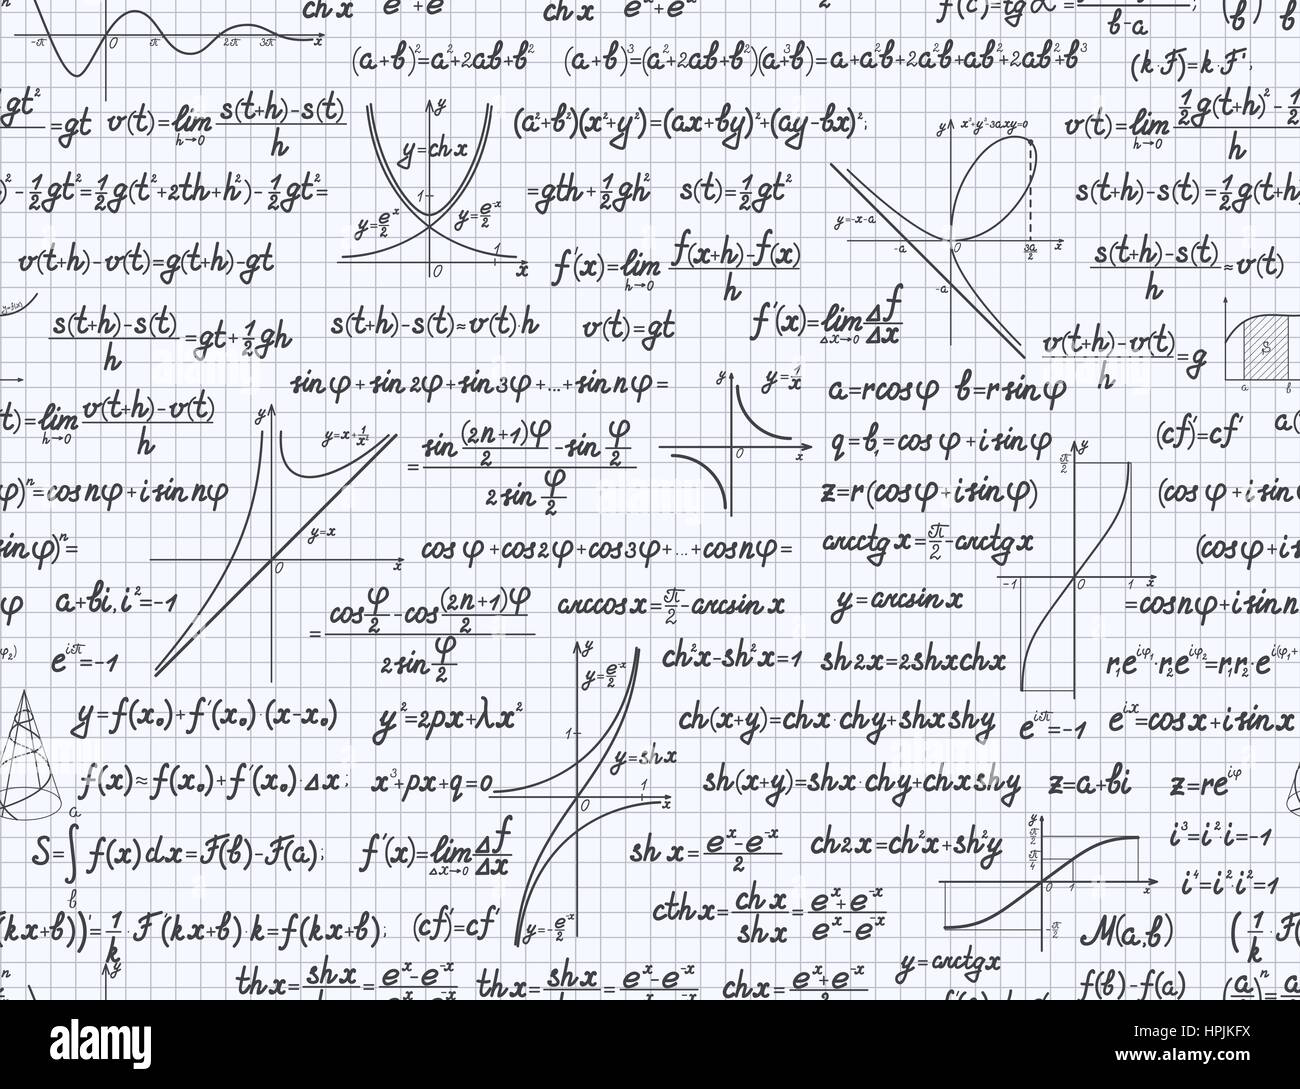 ch x
(a+b)²=a²+2ab+b²
(a+b)³=(a²+2ab+b²)(a+b)=a³+a²b+2a²b+ab²+2ab²+b³
(k·F)'=k·F';
=gt
v(t)=lim h→0 s(t+h)-s(t)/h
y=ch x
(a²+b²)(x²+y²)=(ax+by)²+(ay-bx)²;
x³+y³-3axy=0
-½gt²=½g(t²+2th+h²)-½gt²=
=gth+½gh²
s(t)=½gt²
y=-x-a
v(t+h)-v(t)=g(t+h)-gt
f'(x)=lim h→0 f(x+h)-f(x)/h
s(t+h)-s(t)/h≈v(t)
s(t+h)-s(t)/h=gt+½gh
s(t+h)-s(t)≈v(t)·h
v(t)=gt
f'(x)=lim Δx→0 Δf/Δx
v(t+h)-v(t)/h=g
S
sin φ+sin 2φ+sin 3φ+...+sin nφ=
y=1/x
a=r cos φ b=r sin φ
=lim h→0 v(t+h)-v(t)/h
y=x+1/x²
=sin (2n+1)φ/2-sin φ/2 / 2 sin φ/2
q=b₁=cos φ+i sin φ
(cf)'=cf'
=cos nφ+i sin nφ
z=r(cos φ+i sin φ)
y=x
cos φ+cos 2φ+cos 3φ+...+cos nφ=
arcctg x=π/2-arctg x
a+bi, i²=-1
=cos φ/2-cos (2n+1)φ/2 / 2 sin φ/2
arccos x=π/2-arcsin x
y=arcsin x
e^iπ=-1
ch²x-sh²x=1
sh 2x=2sh x ch x
r₁e^iφ₁·r₂e^iφ₂=r₁r₂·e
y=f(x₀)+f'(x₀)·(x-x₀)
y²=2px+λx²
ch(x+y)=ch x·ch y+sh x sh y
e^iπ=-1
e^ix=cos x+i sin x
f(x)≈f(x₀)+f'(x₀)·Δx;
x³+px+q=0
y=sh x
sh(x+y)=sh x·ch y+ch x sh y
z=a+bi
z=re^iφ
S=∫ f(x)dx=F(b)-F(a);
f'(x)=lim Δx→0 Δf/Δx
sh x=eˣ-e⁻ˣ/2
ch 2x=ch²x+sh²y
i³=i²·i=-1
i⁴=i²·i²=1
(kx+b))'=1/k·F'(kx+b)·k=f(kx+b);
(cf)'=cf'
cth x=ch x/sh x=eˣ+e⁻ˣ/eˣ-e⁻ˣ
M(a,b)
y=arctgx
th x=sh x
th x=sh x
ch x=eˣ+e⁻ˣ
f(b)-f(a)
alamy
Image ID: HPJKFX
www.alamy.com